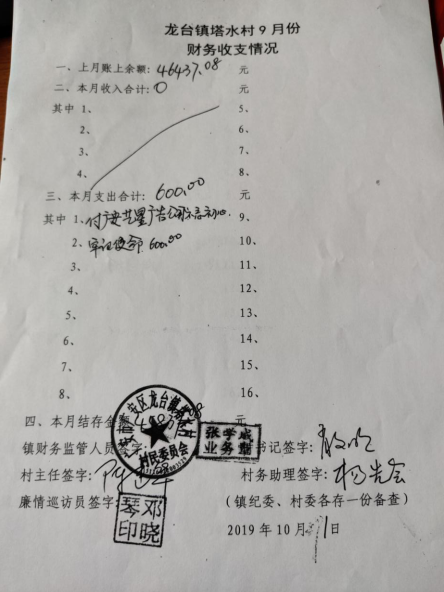 龙台镇塔水村9月份
财务收支情况
一、上月账上余额：46437.08 元
二、本月收入合计：0 元
其中 1、 5、
2、 6、
3、 7、
4、 8、
三、本月支出合计：600.00 元
其中 1、付 广告 9、
2、牢记使命 600.00 10、
3、 11、
4、 12、
5、 13、
6、 14、
7、 15、
8、 16、
四、本月结存金额 元
安区龙台镇塔水村
村民委员会
张学成
业务
镇财务监管人员签字： 书记签字：
村主任签字： 村务助理签字：杨先会
廉情巡访员签字 （镇纪委、村委各存一份备查）
邓晓
琴印
2019年10月 日